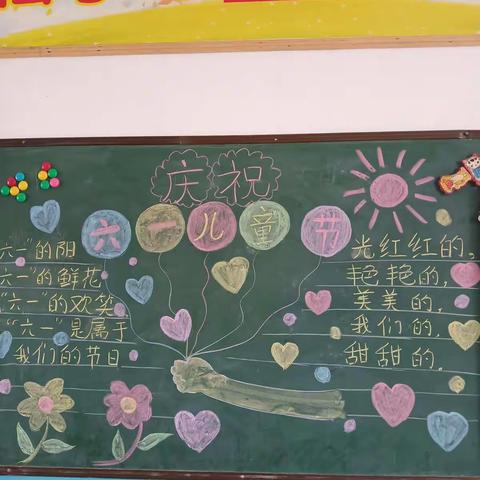 庆祝
六一儿童节
六一"的阳
六一"的鲜花
"六一"的欢笑
"六一"是属于
我们的节日
光红红的，
艳艳的，
美美的，
我们的，
甜甜的。